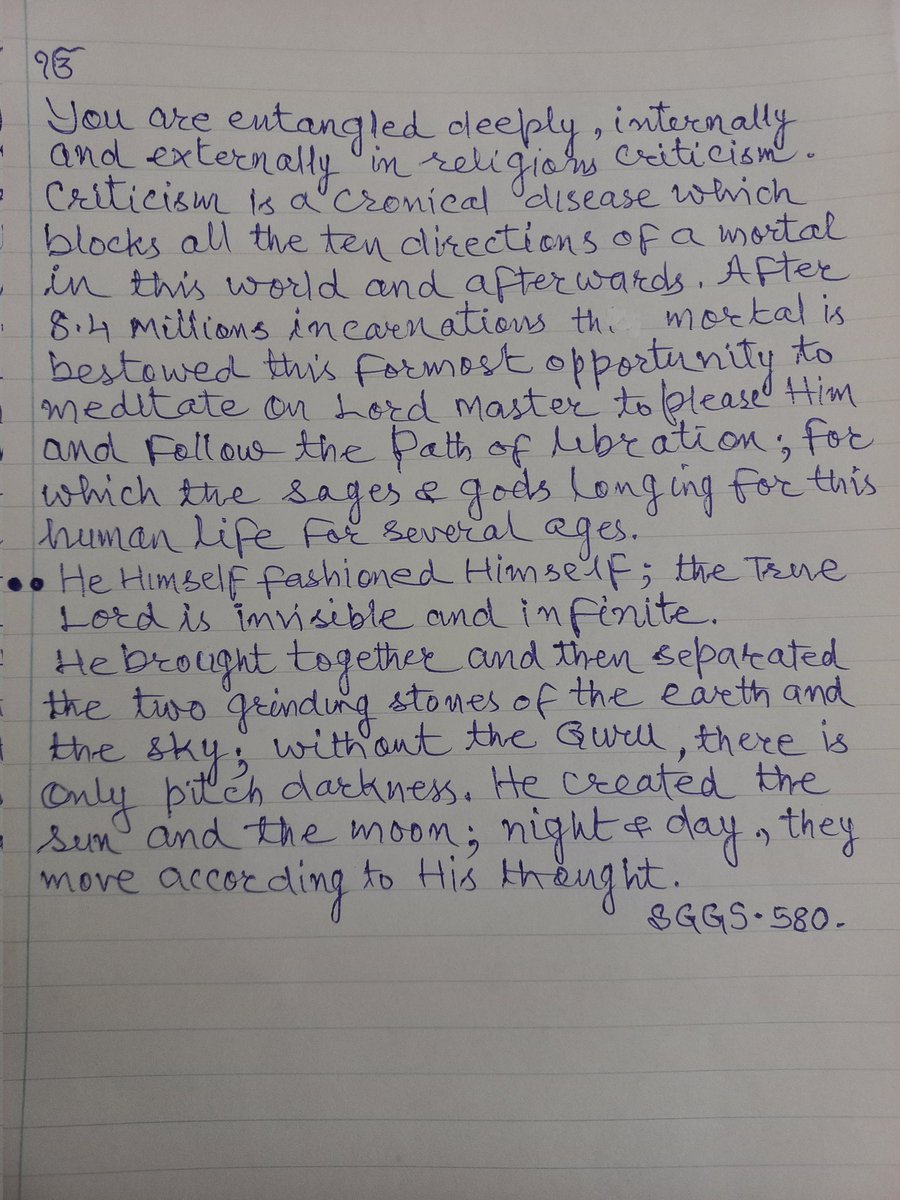 ੴ
You are entangled deeply, internally
and externally in religions criticism.
Criticism is a cronical disease which
blocks all the ten directions of a mortal
in this world and afterwards. After
8.4 Millions incarnations th. mortal is
bestowed this formost opportunity to
meditate on Lord Master to please Him
and Follow the Path of libration; for
which the sages & gods longing for this
human life for several ages.
•• He Himself fashioned Himself; the True
Lord is invisible and infinite.
He brought together and then separated
the two grinding stones of the earth and
the sky; without the Guru, there is
only pitch darkness. He created the
sun and the moon; night & day, they
move according to His thought.
SGGS. 580.